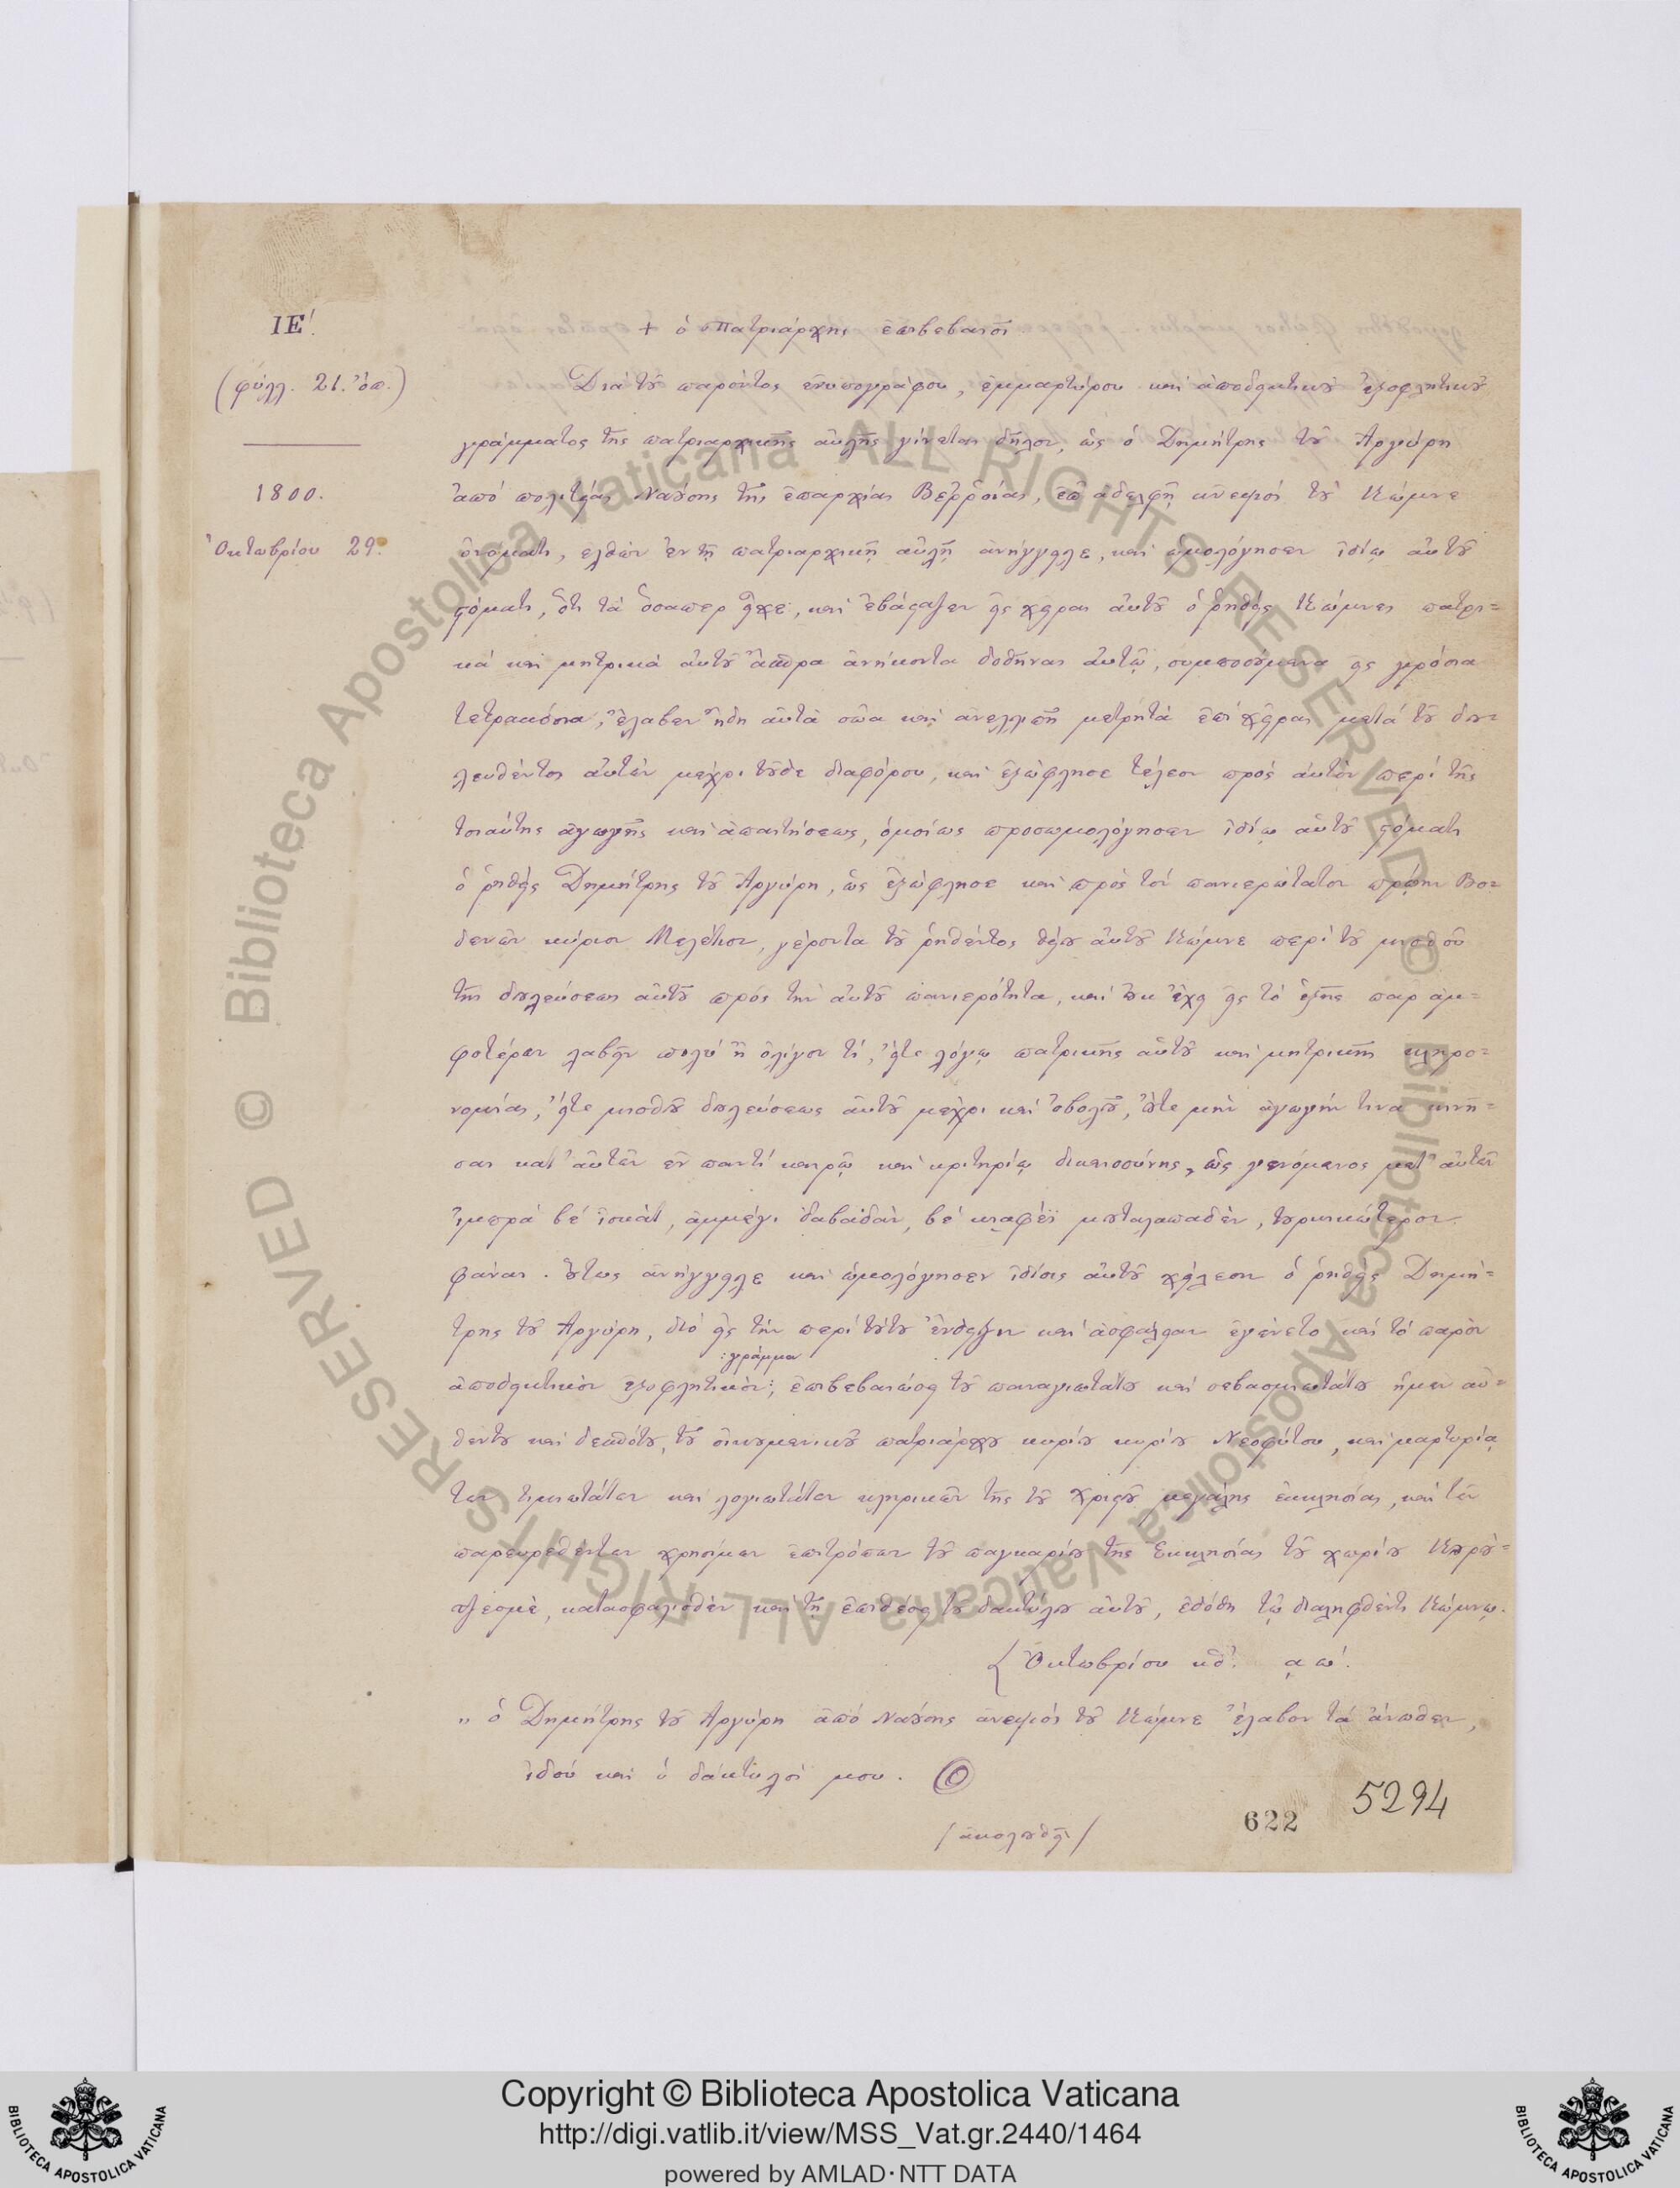 ΙΕ΄.
(φύλλ. 21. ὄπ.)
1800.
Ὀκτωβρίου 29.
+ ὁ Πατριάρχης ἐπιβεβαιοῖ
Διὰ τοῦ παρόντος ἐνυπογράφου, ἐμμαρτύρου καὶ ἀποδεικτικοῦ ἐξοφλητικοῦ
γράμματος τῆς πατριαρχικῆς αὐλῆς γίνεται δῆλον, ὡς ὁ Δημήτρης τοῦ Ἀργύρη
ἀπὸ πολιτείας Ναούσης τῆς ἐπαρχίας Βεῤῥοίας, ἐπ' ἀδελφῇ ἀνεψιός τοῦ Κώμνε
ὀνόματι, ἐλθὼν ἐν τῇ πατριαρχικῇ αὐλῇ ἀνήγγειλε, καὶ ὡμολόγησεν ἰδίῳ αὐτοῦ
στόματι, ὅτι τὰ ὅσαπερ εἶχε, καὶ ἐβάσταζεν εἰς χεῖρας αὐτοῦ ὁ ῥηθεὶς Κώμνες πατρι=
κὰ καὶ μητρικὰ αὐτοῦ ἄσπρα ἀνήκοντα δοθῆναι αὐτῷ, συμποσούμενα εἰς γρόσια
τετρακόσια, ἔλαβεν ἤδη αὐτὰ σῶα καὶ ἀνελλιπῆ μετρητὰ ἐπὶ χεῖρας μετὰ τοῦ δου=
λευθέντος αὐτῶν μέχρι τοῦδε διαφόρου, καὶ ἐξώφλησε τέλεον πρὸς αὐτὸν περὶ τῆς
τοιαύτης ἀγωγῆς καὶ ἀπαιτήσεως, ὁμοίως προσωμολόγησεν ἰδίῳ αὐτοῦ στόματι
ὁ ῥηθεὶς Δημήτρης τοῦ Ἀργύρη, ὡς ἐξώφλησε καὶ πρὸς τὸν πανιερώτατον πρῴην Βο=
δενῶν κύριον Μελέτιον, γέροντα τοῦ ῥηθέντος θείου αὐτοῦ Κώμνε περὶ τοῦ μισθοῦ
τῆς δουλεύσεως αὐτοῦ πρὸς τὴν αὐτοῦ πανιερότητα, καὶ οὐκ ἔχει εἰς τὸ ἑξῆς παρ' ἀμ=
φοτέρων λαβεῖν πολὺ ἢ ὀλίγον τί, εἴτε λόγῳ πατρικῆς αὐτοῦ καὶ μητρικῆς κληρο=
νομίας, εἴτε μισθοῦ δουλεύσεως αὐτοῦ μέχρι καὶ ὀβολοῦ, οὔτε μὴν ἀγωγήν τινα κινῆ=
σαι κατ' αὐτῶν ἐν παντὶ καιρῷ καὶ κριτηρίῳ δικαιοσύνης, ὡς γενόμενος μετ' αὐτῶν
ἰμπρὰ βὲ ἰσκὰτ, ἀμμέγι δαβαϊδὰν, βὲ κιαφέϊ μουταλαπαδὲν, τουρκικώτερον
φάναι. Οὕτως ἀνήγγειλε καὶ ὡμολόγησεν ἰδίοις αὐτοῦ χείλεσιν ὁ ῥηθεὶς Δημή=
τρης τοῦ Ἀργύρη, διὸ εἰς τὴν περὶ τούτου ἔνδειξιν καὶ ἀσφάλειαν ἐγένετο καὶ τὸ παρὸν
:γράμμα
ἀποδεικτικὸν ἐξοφλητικὸν:, ἐπιβεβαιώσει τοῦ παναγιωτάτου καὶ σεβασμιωτάτου ἡμῶν αὐ=
θέντου καὶ δεσπότου, τοῦ οἰκουμενικοῦ πατριάρχου κυρίου κυρίου Νεοφύτου, καὶ μαρτυρίᾳ
τῶν τιμιωτάτων καὶ λογιωτάτων κληρικῶν τῆς τοῦ Χριστοῦ μεγάλης ἐκκλησίας, καὶ τῶν
παρευρεθέντων χρησίμων ἐπιτρόπων τοῦ παγκαρίου τῆς Ἐκκλησίας τοῦ χωρίου Κουρού=
τζεσμὲ, κατασφαλισθὲν καὶ τῇ ἐπιθέσει τοῦ δακτύλου αὐτοῦ, ἐδόθη τῷ διαληφθέντι Κώμνῳ.
Ὀκτωβρίου κθ΄. ͵αω΄.
„ ὁ Δημήτρης τοῦ Ἀργύρη ἀπὸ Ναούσης ἀνεψιός τοῦ Κώμνε ἔλαβον τὰ ἄνωθεν,
ἰδοὺ καὶ ὁ δάκτυλός μου.
/ἀκολουθεῖ/
622 5294
Copyright © Biblioteca Apostolica Vaticana
http://digi.vatlib.it/view/MSS_Vat.gr.2440/1464
powered by AMLAD·NTT DATA
BIBLIOTECA APOSTOLICA VATICANA
BIBLIOTECA APOSTOLICA VATICANA
© Biblioteca Apostolica Vaticana ALL RIGHTS RESERVED
© Biblioteca Apostolica Vaticana ALL RIGHTS RESERVED